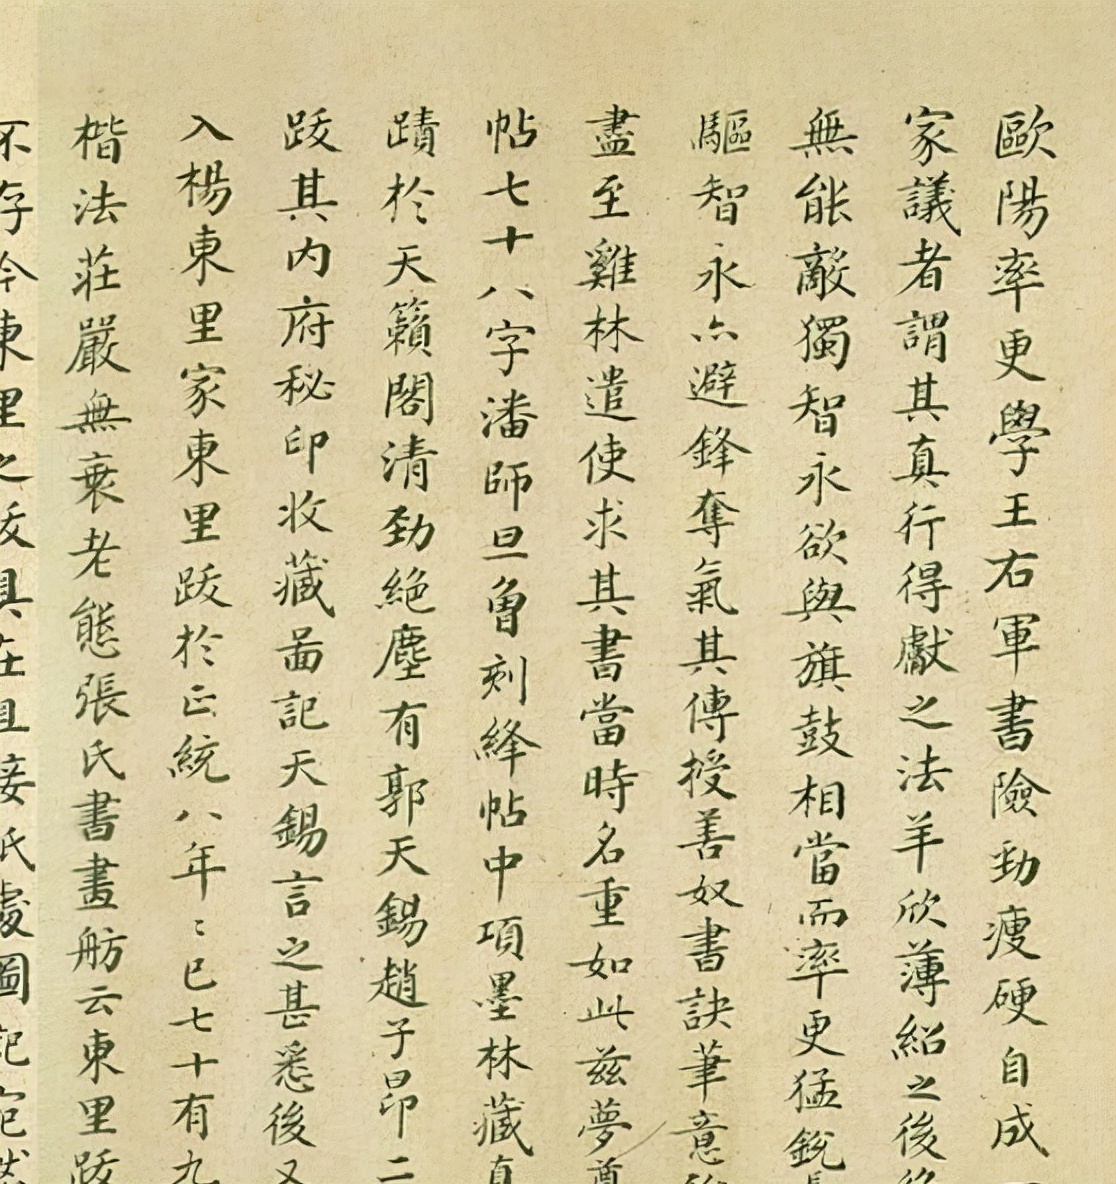 歐陽率更學王右軍書險勁瘦硬自成
家議者謂其真行得獻之法羊欣薄紹之後
無能敵獨智永欲與旗鼓相當而率更猛銳
驅智永亦避鋒奪氣其傳授善奴書訣筆意
盡至雞林遣使求其書當時名重如此茲夢奠
帖七十八字潘師旦曾刻絳帖中項墨林藏真
蹟於天籟閣清勁絕塵有郭天錫趙子昂二
跋其內府秘印收藏啚記天錫言之甚悉後又
入楊東里家東里跋於正統八年年已七十有九
楷法莊嚴無衰老態張氏書畫舫云東里跋
不存今東里之跋具在且